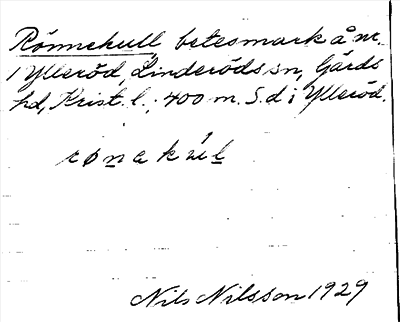 Rönnekull, betesmark å nr.
1 Ylleröd, Linderöds sn, Gärds
hd, Krist. l.; 400 m. S. d i Ylleröd.
rønakul
Nils Nilsson 1929